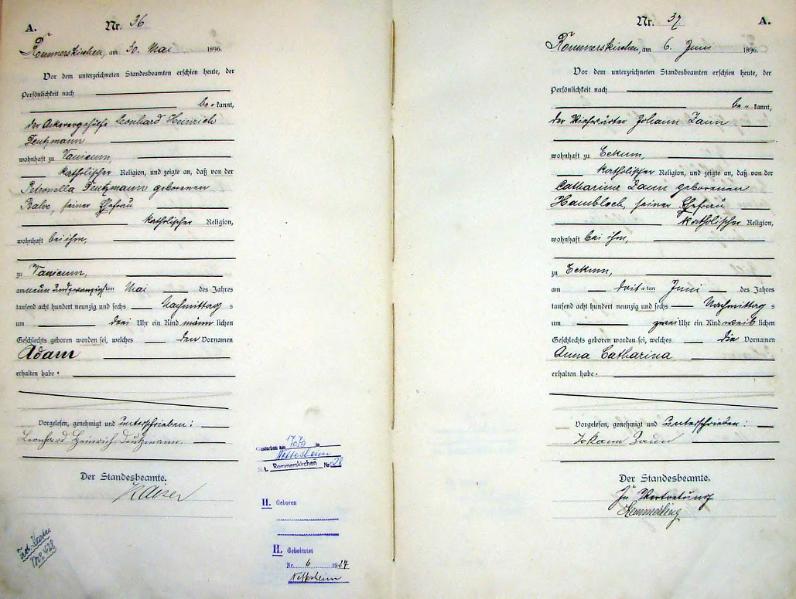 A.
Nr. 36
Rommerskirchen, am 30. Mai 1896.
Vor dem unterzeichneten Standesbeamten erschien heute, der
Persönlichkeit nach
be=kannt,
der Ackerergehülfe Leonhard Heinrich
wohnhaft zu Vanicum,
katholischer Religion, und zeigte an, daß von der
Petronella geborenen
seiner Ehefrau
katholischer Religion,
wohnhaft bei ihm,
zu Vanicum,
am neun und zwanzigsten Mai des Jahres
tausend acht hundert neunzig und sechs Nachmittag s
um drei Uhr ein Kind männ lichen
Geschlechts geboren worden sei, welches den Vornamen
Adam
erhalten habe.
Vorgelesen, genehmigt und unterschrieben:
Leonhard Heinrich
Der Standesbeamte.
Gestorben am
Nettesheim
Rommerskirchen
II. Geboren
II. Geheiratet
Nr. 6 1927
Nettesheim
Nr. 37
A.
Rommerskirchen, am 6. Juni 1896.
Vor dem unterzeichneten Standesbeamten erschien heute, der
Persönlichkeit nach
be=kannt,
der Johann Zaun
wohnhaft zu Eckum,
katholischer Religion, und zeigte an, daß von der
Catharina Zaun geborenen
Hambloch, seiner Ehefrau
katholischer Religion,
wohnhaft bei ihm,
zu Eckum,
am dritten Juni des Jahres
tausend acht hundert neunzig und sechs Nachmittag s
um zwei Uhr ein Kind weib lichen
Geschlechts geboren worden sei, welches die Vornamen
Anna Catharina
erhalten habe.
Vorgelesen, genehmigt und unterschrieben:
Johann Zaun
Der Standesbeamte.
In Vertretung
Hemmerling